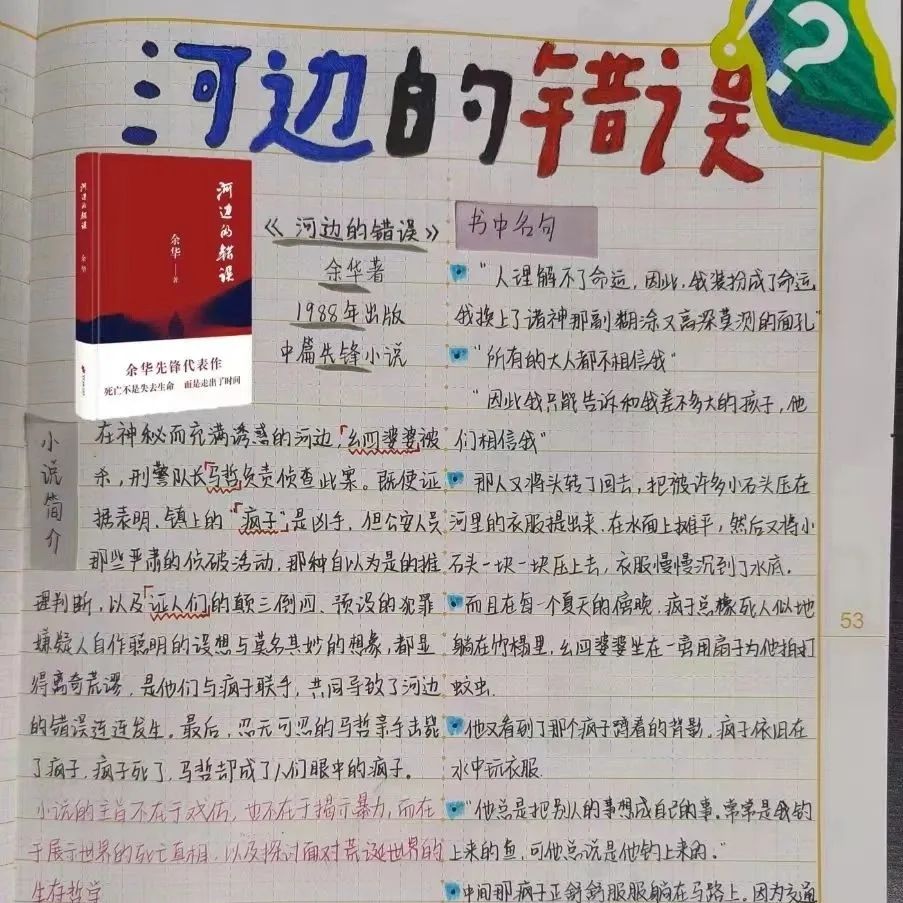 河边的错误
?
河边的错误
余华
河边的错误
余华 著
余华先锋代表作
死亡不是失去生命 而是走出了时间
《河边的错误》
余华著
1988年出版
中篇先锋小说
小说简介
在神秘而充满诱惑的河边，“幺四婆婆”被
杀，刑警队长“马哲”负责侦查此案。既使证
据表明、镇上的“疯子”是凶手，但公安人员
那些严肃的侦破活动，那种自以为是的推
理判断，以及“证人们”的颠三倒四、预设的犯罪
嫌疑人自作聪明的设想与莫名其妙的想象，都显
得离奇荒谬，是他们与疯子联手，共同导致了河边
的错误连连发生。最后，忍无可忍的马哲亲手击毙
了疯子，疯子死了，马哲却成了人们眼中的疯子。
小说的主旨不在于戏仿，也不在于揭示暴力，而在
于展示世界的死亡真相，以及探讨面对荒诞世界的
生存哲学
书中名句
“人理解不了命运，因此，我装扮成了命运
我换上了诸神那副糊涂又高深莫测的面孔”
“所有的大人都不相信我”
“因此我只能告诉和我差不多大的孩子，他
们相信我”
那人又将头转了回去，把被许多小石头压在
河里的衣服提出来，在水面上摊平，然后又将小
石头一块一块压上去，衣服慢慢沉到了水底。
而且在每一个夏天的傍晚，疯子总像死人似地
躺在竹榻里，幺四婆婆坐在一旁用扇子为他拍打
蚊虫.
他又看到了那个疯子蹲着的背影，疯子依旧在
水中玩衣服.
“他总是把别人的事想成自己的事。常常是我钓
上来的鱼，可他总说是他钓上来的。”
中间那疯子正舒舒服服躺在马路上。因为交通
53